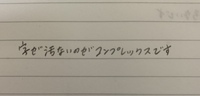 字が汚ないのがコンプレックスです